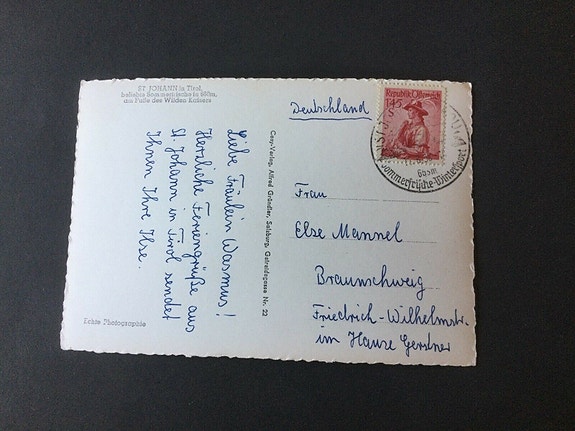 ST. JOHANN in Tirol,
beliebte Sommerfrische in 660m,
am Fuße des Wilden Kaisers
Liebe Fräulein Wasmus!
Herzliche Feriengrüße aus
St. Johann in Tirol sendet
Ihnen Ihre Ilse.
Echte Photographie
Cosy-Verlag, Alfred Gründler, Salzburg, Getreidegasse Nr. 22
Deutschland
Republik Österreich
1.45
Sommerfrische-Wintersport
Frau
Else Mannel
Braunschweig
Friedrich-Wilhelmstr.
im Hause Gerstner